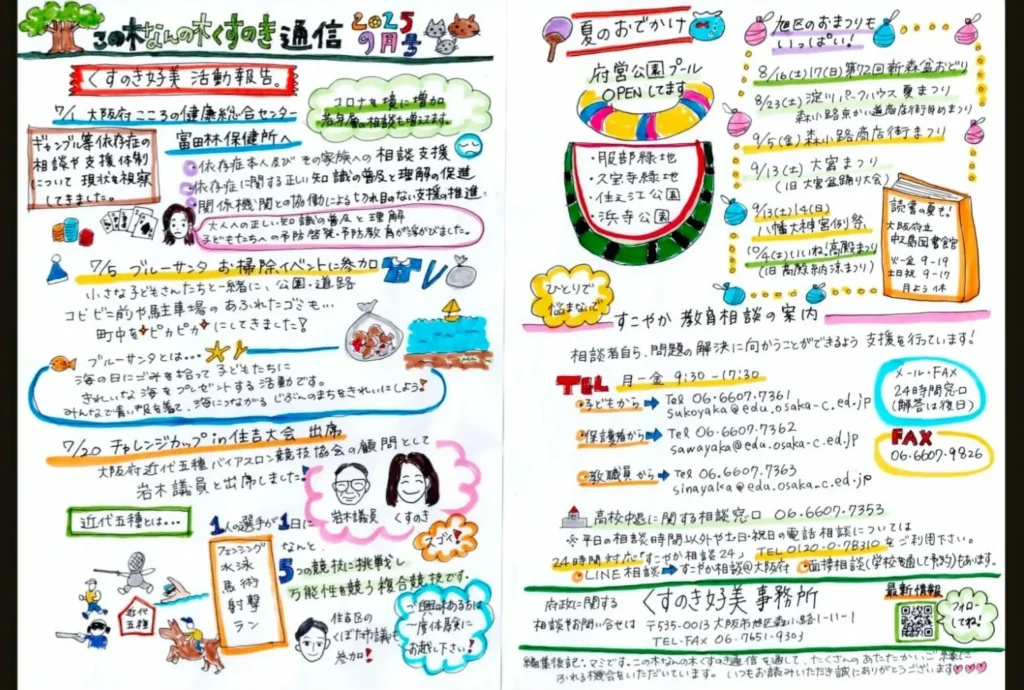 この木なんの木くすのき通信
2025
9月号
くすのき好美 活動報告。
7/1 大阪府こころの健康総合センター
富田林保健所へ
コロナを境に増加
若年層の相談も増えてます。
ギャンブル等依存症の
相談や支援体制
について 現状を視察
してきました。
・依存症本人及び その家族への 相談支援
・依存症に関する正しい知識の普及と理解の促進
・関係機関との協働による切れ目のない支援の推進
大人への正しい知識の普及と理解
子どもたちへの予防啓発・予防教育が浮かびました。
7/5 ブルーサンタ お掃除イベントに参加
小さな子どもさんたちと一緒に、公園・道路
コンビニ前や駐車場の あふれたゴミも...
町中を✦ピカピカ✦にしてきました!
ブルーサンタとは...
海の日にごみを拾って 子どもたちに
きれいな海をプレゼントする活動です。
みんなで青い服を着て、海につながる じぶんのまちをきれいにしよう!
7/20 チャレンジカップ in 住吉大会 出席
大阪府近代五種バイアスロン競技協会の顧問として
岩木議員と出席しました。
岩木議員
くすのき
近代五種とは...
1人の選手が1日に
なんと、
5つの競技に挑戦し
万能性を競う複合競技です。
スゴイ!
フェンシング
水泳
馬術
射撃
ラン
近代
五種
住吉区の
くぼた市議も
参加!
ご興味ある方は
一度体験に
お越し下さい!
夏のおでかけ
府営公園プール
OPENしてます
・服部緑地
・久宝寺緑地
・住之江公園
・浜寺公園
旭区のおまつりも
いっぱい!
8/16(土)17(日)第72回新森盆おどり
8/23(土)淀川パークハウス 夏まつり
森小路京かい道商店街床めまつり
9/5(金)森小路商店街まつり
9/13(土)大宮まつり
(旧大宮盆踊り大会)
9/13(土)14(日)
八幡大神宮例祭
10/4(土)いいね!高殿まつり
(旧高殿納涼まつり)
読書の夏も!
大阪府立
中之島図書館
火-金 9-19
土日祝 9-17
月よう休
ひとりで
悩まないで
すこやか 教育相談の案内
相談者自ら、問題の解決に向かうことができるよう 支援を行っています!
TEL 月-金 9:30-17:30
・子どもから➡ Tel 06-6607-7361
sukoyaka@edu.osaka-c.ed.jp
・保護者から➡ Tel 06-6607-7362
sawayaka@edu.osaka-c.ed.jp
・教職員から➡ Tel 06-6607-7363
sinayaka@edu.osaka-c.ed.jp
メール・FAX
24時間窓口
(解答は後日)
FAX
06-6607-9826
高校中退に関する相談窓口 06-6607-7353
※平日の相談時間以外や土・日・祝日の電話相談については
24時間対応「すこやか相談24」 TEL 0120-0-78310 をご利用下さい。
・LINE相談➡すこやか相談@大阪府 ・面接相談(学校を通して予約)もあります。
府政に関する
相談やお問い合せは
くすのき好美 事務所
〒535-0013 大阪市旭区森小路1-11-1
TEL・FAX 06-7651-9303
最新情報
フォロー
してね!
編集後記：マミです。この木なんの木くすのき通信を通して、たくさんのあたたかいご縁に
ふれる機会をいただいています。いつもお読みいただき誠にありがとうございます♡♡♡